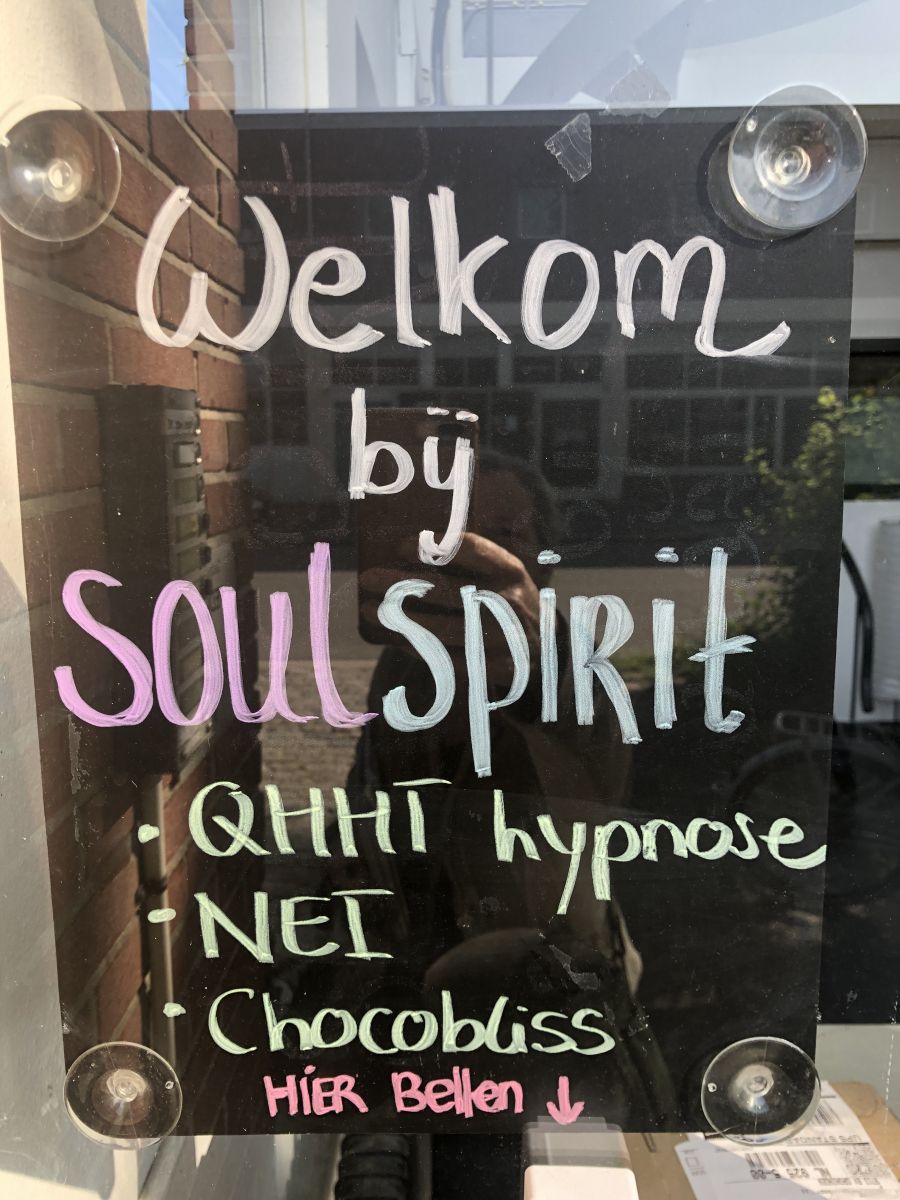 Welkom
bij
Soulspirit
• QHHT hypnose
• NEI
• Chocobliss
HiER Bellen ↓